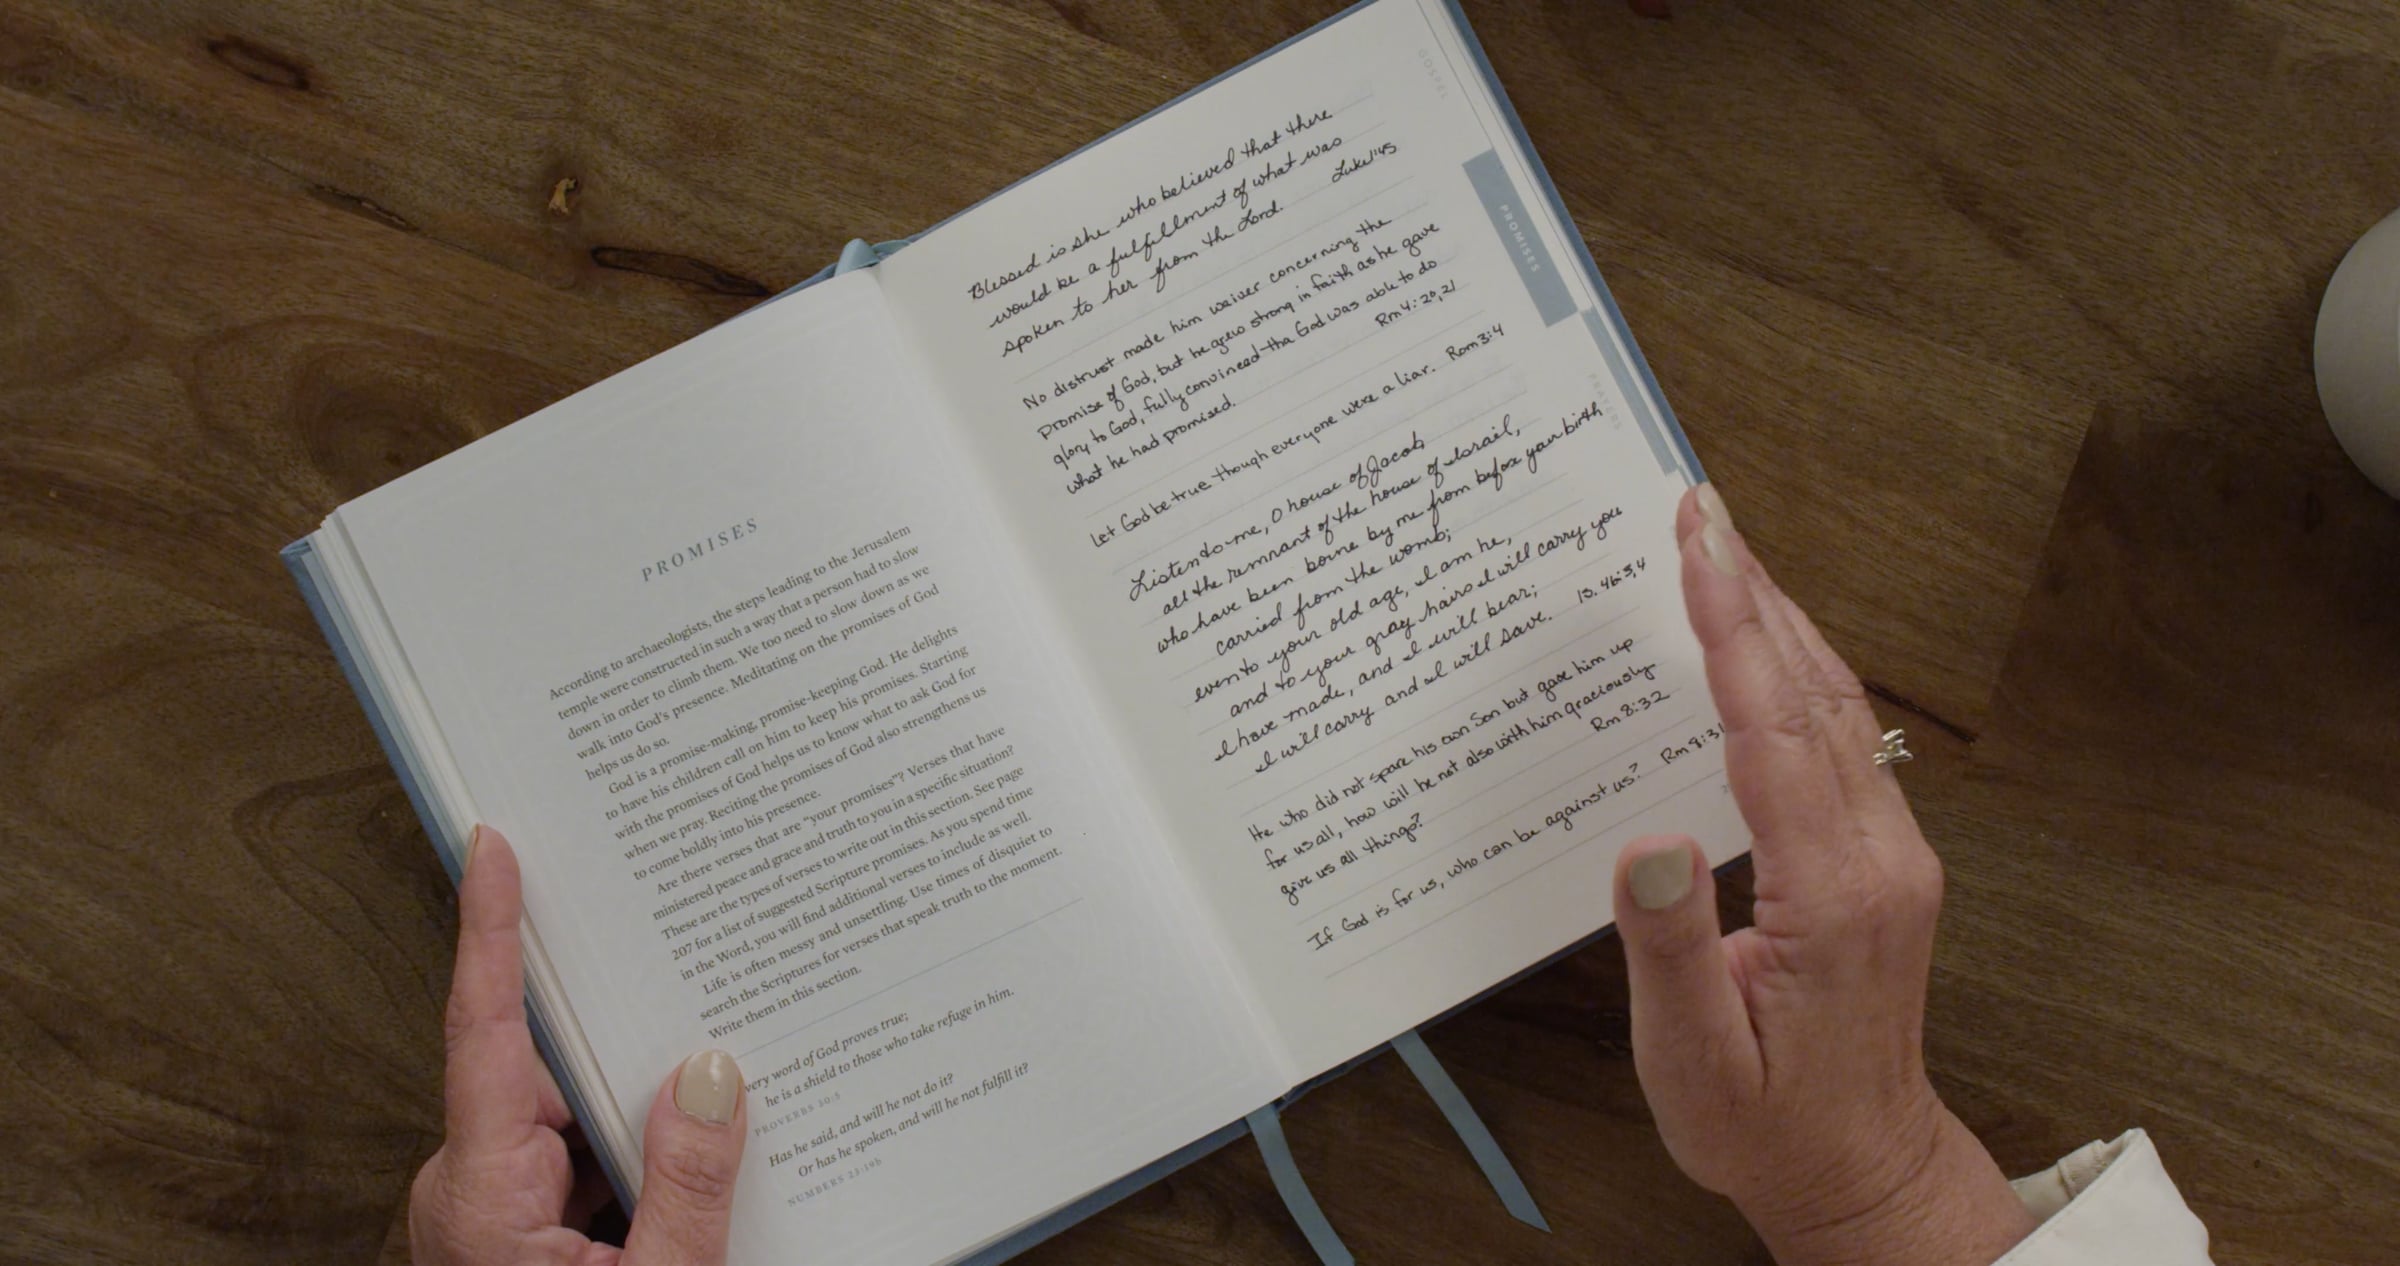 PROMISES
According to archaeologists, the steps leading to the Jerusalem
temple were constructed in such a way that a person had to slow
down in order to climb them. We too need to slow down as we
walk into God's presence. Meditating on the promises of God
helps us do so.
God is a promise-making, promise-keeping God. He delights
to have his children call on him to keep his promises. Starting
with the promises of God helps us to know what to ask God for
when we pray. Reciting the promises of God also strengthens us
to come boldly into his presence.
Are there verses that are “your promises”? Verses that have
ministered peace and grace and truth to you in a specific situation?
These are the types of verses to write out in this section. See page
207 for a list of suggested Scripture promises. As you spend time
in the Word, you will find additional verses to include as well.
Life is often messy and unsettling. Use times of disquiet to
search the Scriptures for verses that speak truth to the moment.
Write them in this section.
very word of God proves true;
he is a shield to those who take refuge in him.
PROVERBS 30:5
Has he said, and will he not do it?
Or has he spoken, and will he not fulfill it?
NUMBERS 23:19b
Blessed is she who believed that there
would be a fulfillment of what was
spoken to her from the Lord. Luke 1:45
No distrust made him waiver concerning the
promise of God, but he grew strong in faith as he gave
glory to God, fully convinced tha God was able to do
what he had promised. Rm 4:20,21
Let God be true though everyone were a liar. Rom 3:4
Listen to me, O house of Jacob,
all the remnant of the house of Israil,
who have been borne by me from before your birth
carried from the womb;
even to your old age, I am he,
and to your gray hairs I will carry you
I have made, and I will bear;
I will carry and I will save. IS. 46:3,4
He who did not spare his own Son but gave him up
for us all, how will he not also with him graciously
give us all things? Rm 8:32
If God is for us, who can be against us? Rm 8:31
GOSPEL
PROMISES
PRAYERS